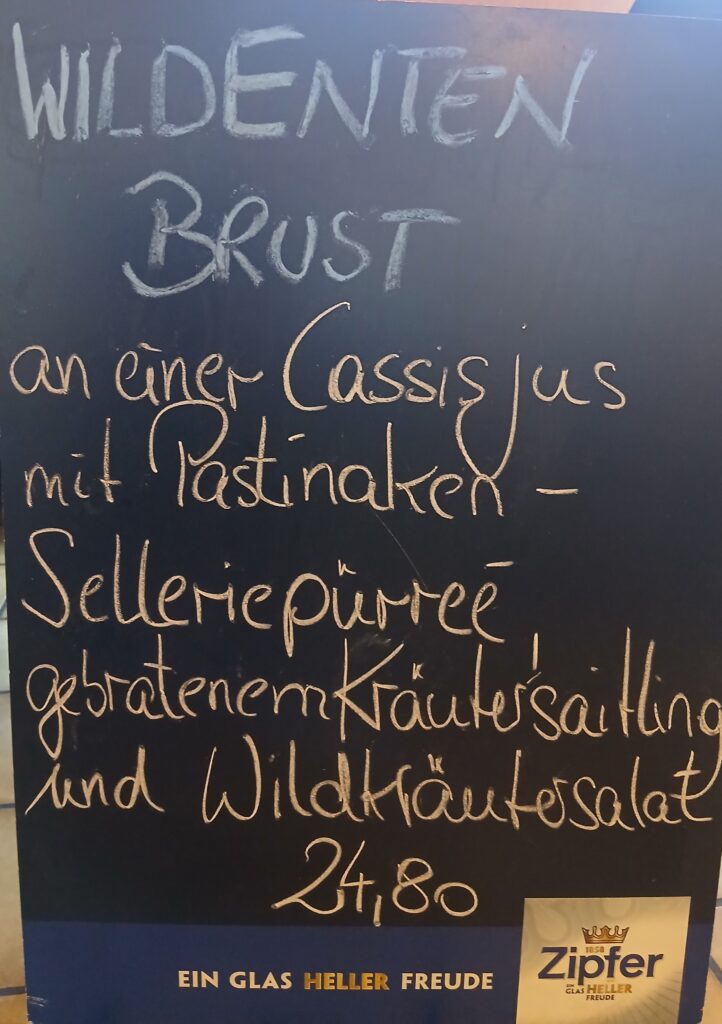 WILDENTEN
BRUST
an einer Cassisjus
mit Pastinaken -
Selleriepürreé,
gebratenem Kräutersaitling
und Wildkräutersalat
24,80
EIN GLAS HELLER FREUDE
1858
Zipfer
EIN
GLAS HELLER
FREUDE